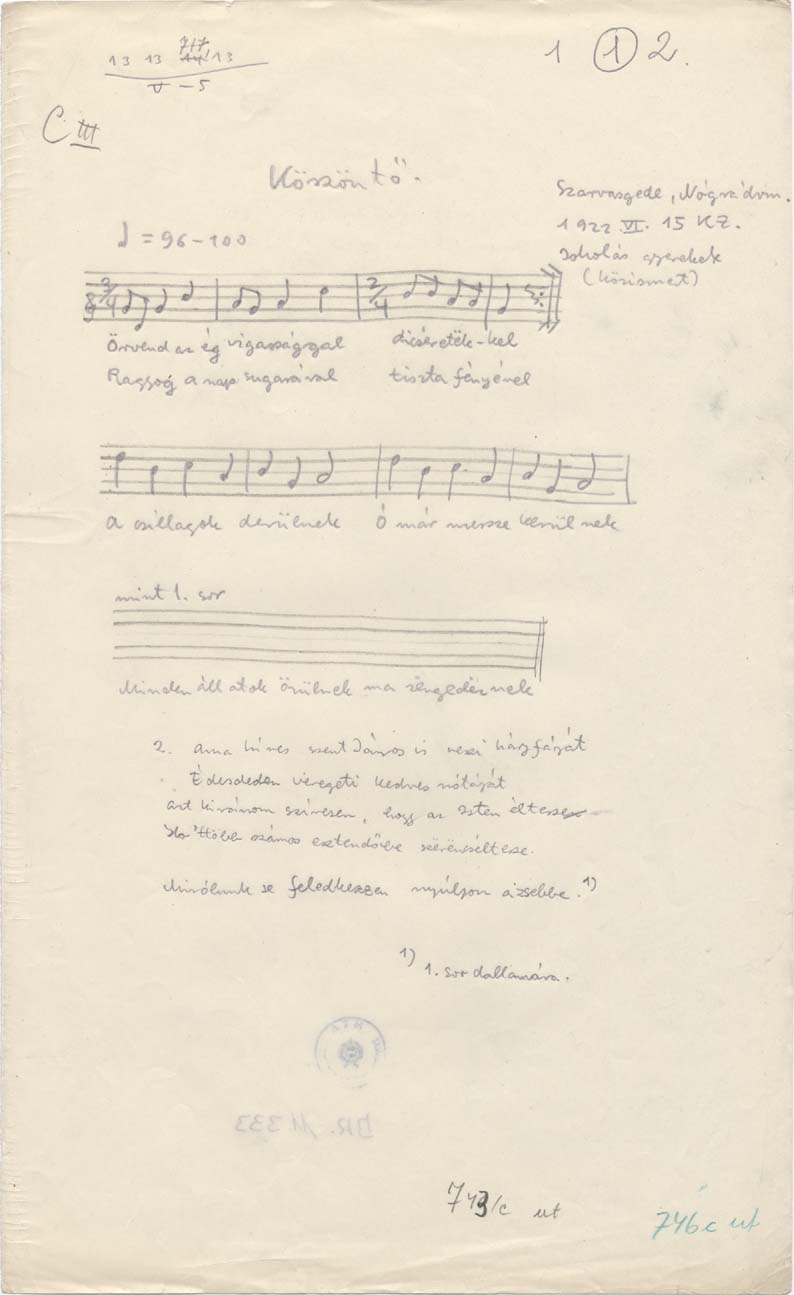 13 13 7+7 13
V – 5
1 ① 2.
C III
Köszöntő.
Szarvasgede, Nógrádvm.
1922. VI. 15 KZ.
Iskolás gyerekek
(közismert)
♩ = 96 – 100
3/4 2/4
Örvend az ég vigassággal dicséretëk-kel
Ragyog a nap sugarával tiszta fényével
A csillagok derülnek Ó már messze kerülnek
mint 1. sor
Minden állatok örülnek ma zëngedëznek
2. Ama híres szent Dávid is veszi hárfáját
Édesdeden veregeti kedves nótáját
azt kívánom szívesen, hogy az Isten éltesse
esztendőkbe
Mirólunk se feledkezzen nyúljon a zsebbe. 1)
1) 1. sor dallamára.
BR. 11333
743/c ut
746c ut